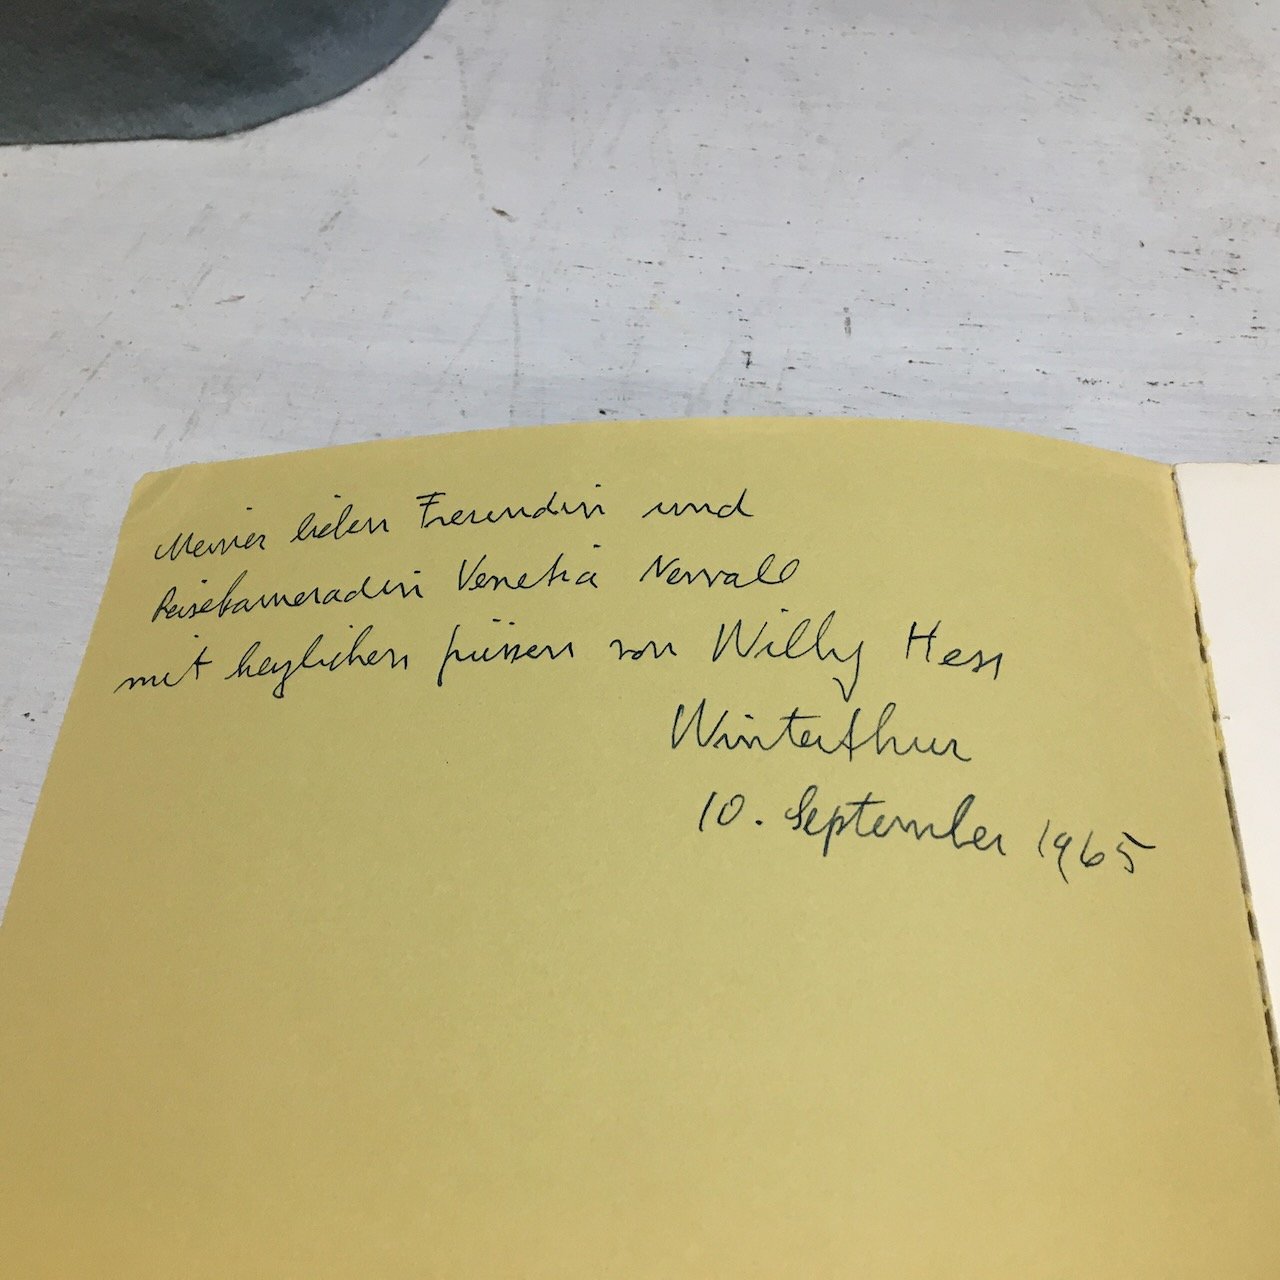 Meiner lieben Freundin und
Reisekameradin Venetia Newall
mit herzlichen Grüssen von Willy Hess
Winterthur
10. September 1965